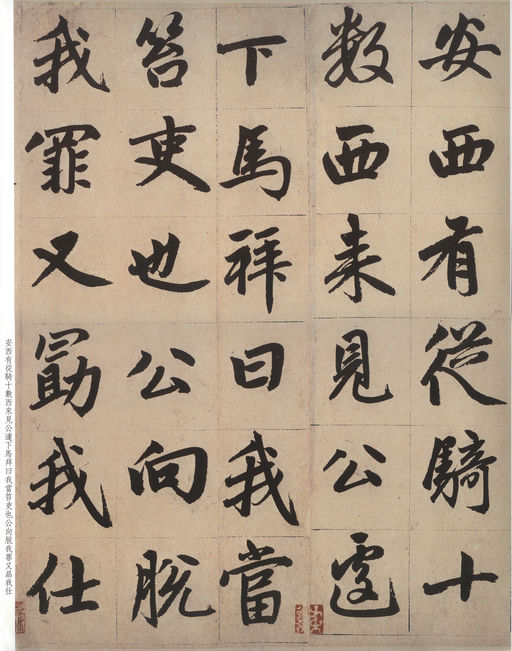 安西有從騎十
數西来見公遽
下馬拜曰我當
笞吏也公向脱
我罪又勗我仕
安西有從騎十數西來見公遽下馬拜曰我當笞吏也公向脫我罪又勗我仕